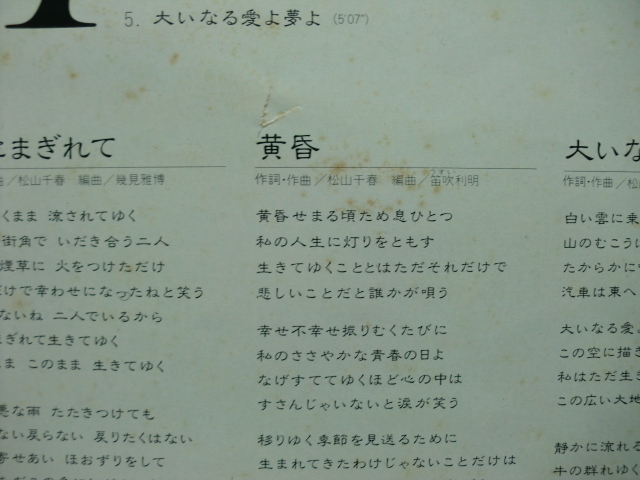 5. 大いなる愛よ夢よ (5'07")
まぎれて
曲／松山千春 編曲／幾見雅博
くまま 流されてゆく
街角で いだき合う二人
煙草に 火をつけただけ
だけで幸わせになったねと笑う
ないね 二人でいるから
まぎれて生きてゆく
ま このまま 生きてゆく
悪な雨 たたきつけても
ない戻らない 戻りたくはない
寄せあい ほおずりをして
黄昏
作詞・作曲／松山千春 編曲／笛吹利明
うすい
黄昏せまる頃ため息ひとつ
私の人生に灯りをともす
生きてゆくこととはただそれだけで
悲しいことだと誰かが唄う
幸せ不幸せ振りむくたびに
私のささやかな青春の日よ
なげすててゆくほど心の中は
すさんじゃいないと涙が笑う
移りゆく季節を見送るために
生まれてきたわけじゃないことだけは
大いな
作詞・作曲／松
白い雲に乗
山のむこうに
たからかに
汽車は東へ
大いなる愛よ
この空に描き
私はただ生き
この広い大地
静かに流れる
牛の群れゆく